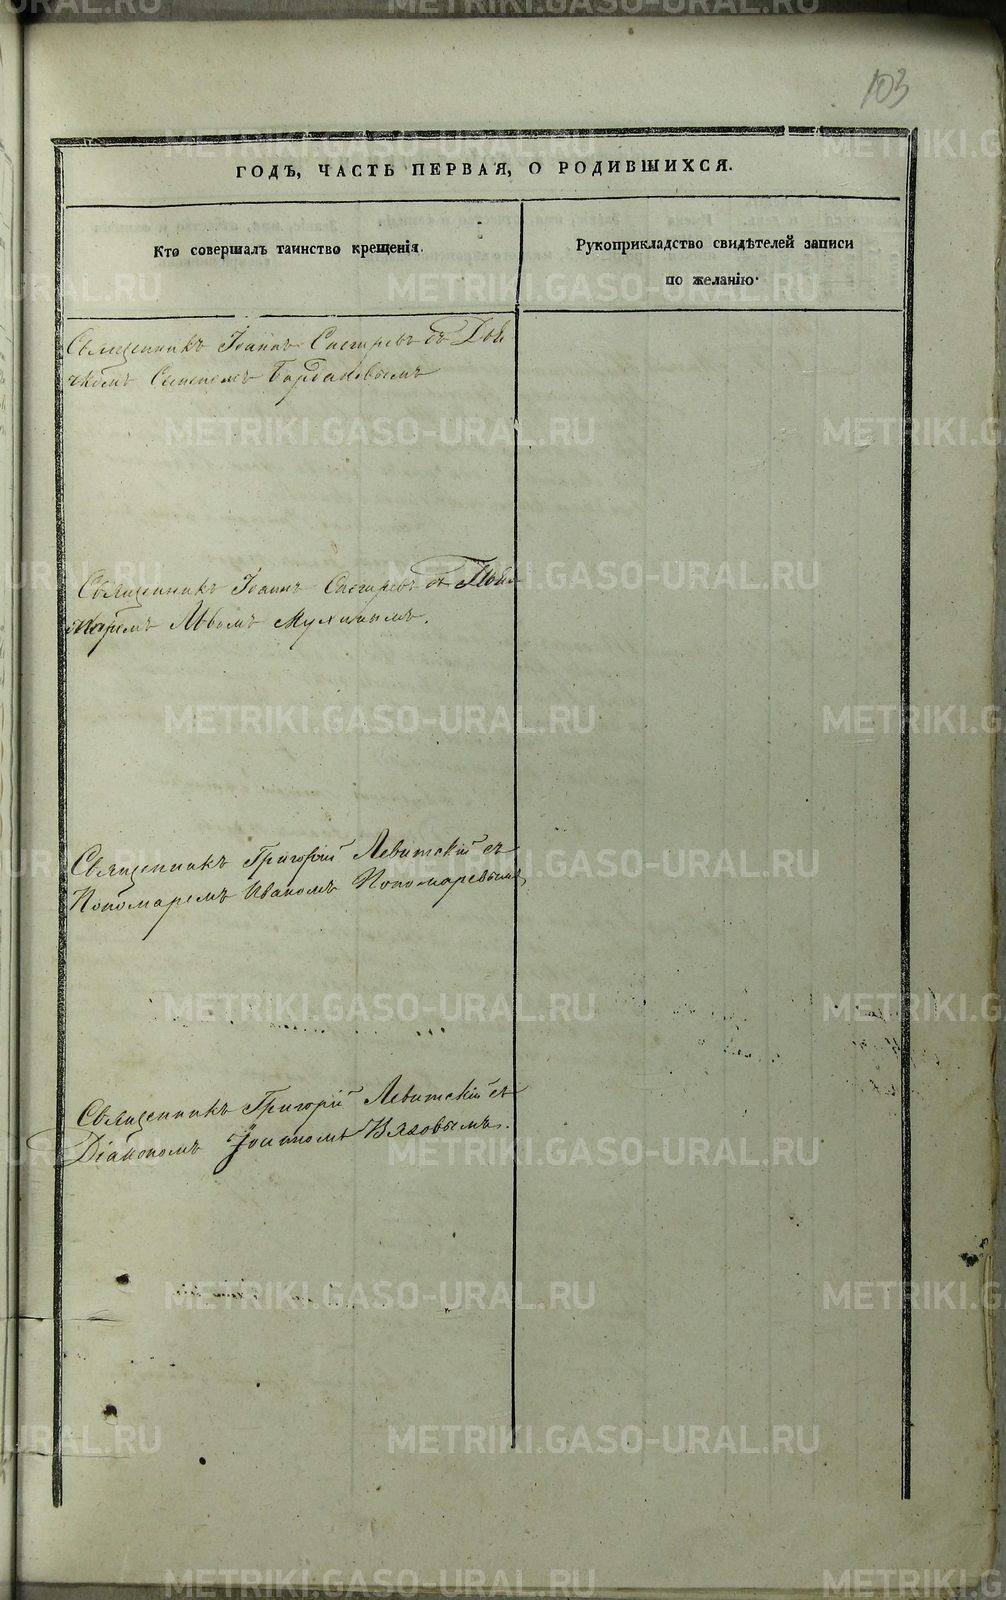 METRIKI.GASO-URAL.RU
103
ГОДЪ, ЧАСТЬ ПЕРВАЯ, О РОДИВШИХСЯ.
Кто совершалъ таинство крещенія.
Рукоприкладство свидѣтелей записи
по желанію.
Священникъ Іоаннъ Снегиревъ съ
Священникъ Іоаннъ Снегиревъ съ
Львомъ Мухинымъ.
Священникъ Григорій Левитскій съ
Пономаремъ Иваномъ Пономаревымъ
Священникъ Григорій Левитскій съ
Діакономъ